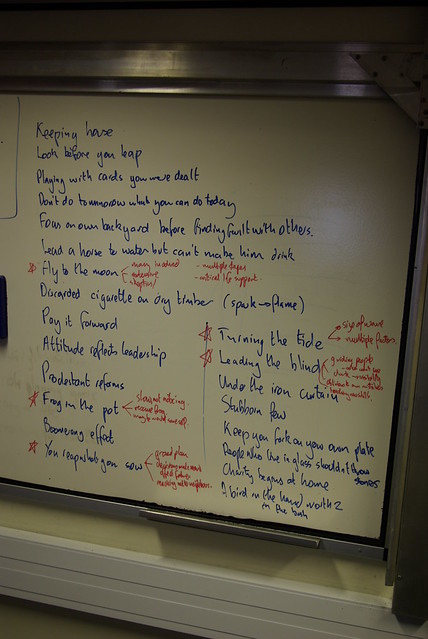 Keeping house
Look before you leap
Playing with cards you were dealt
Don't do tomorrow what you can do today
Focus on own backyard before finding fault with others.
Lead a horse to water but can't make him drink
Fly to the moon
many involved
- multiple stages
- critical life support
Discarded cigarette on dry timber (spark → flame)
Pay it forward
Attitude reflects leadership
Protestant reforms
Frog in the pot
Boomerang effect
You reap what you sow
ground plan
Turning the tide
size of wave
multiple factors
Leading the blind
guiding people
Under the iron curtain
Stubborn few
Keep your fork on your own plate
People who live in glass shouldn't throw
stones
Charity begins at home
A bird in the hand worth 2
in the bush